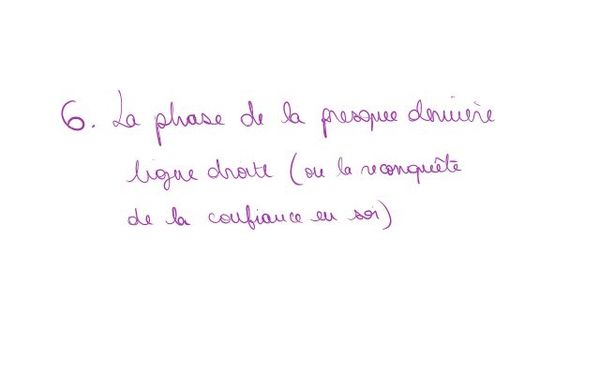 6. La phase de la presque dernière
ligne droite (ou la reconquête
de la confiance en soi)